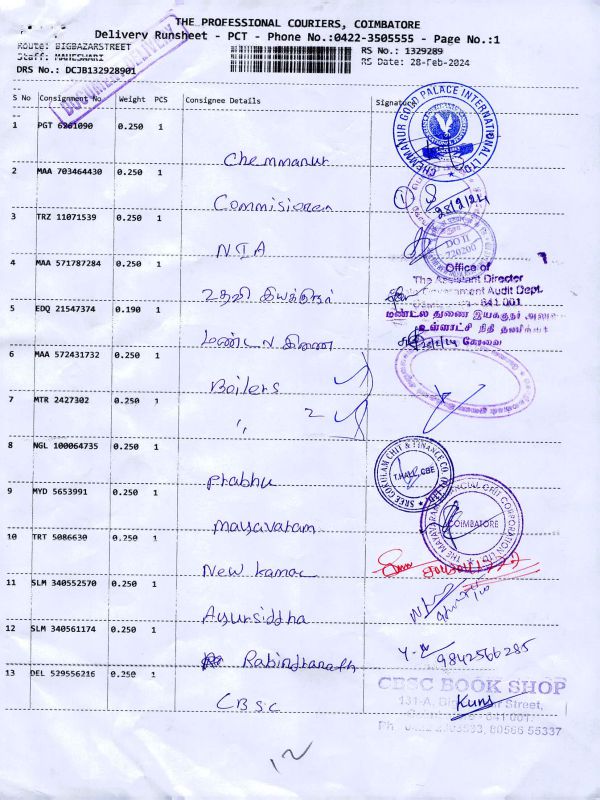 THE PROFESSIONAL COURIERS, COIMBATORE
Delivery Runsheet - PCT - Phone No.:0422-3505555 - Page No.:1
Route: BIGBAZARSTREET
RS No.: 1329289
Staff: MAHESWARI
RS Date: 28-Feb-2024
DRS No.: DCJB132928901
S No Consignment No Weight PCS Consignee Details Signature
CHEMMANUR GOLD PALACE INTERNATIONAL LTD
1 PGT 6261090 0.250 1 Chemmanur
2 MAA 703464430 0.250 1 Commisioner
28/2/24
3 TRZ 11071539 0.250 1 NIA
DO II
720200
4 MAA 571787284 0.250 1 உதவி இயக்குநர்
Office of
The Assistant Director
Government Audit Dept.
641 001
5 EDQ 21547374 0.190 1 மண்டல இணை
மண்டல துணை இயக்குநர்
உள்ளாட்சி நிதி தணிக்கை
கோவை
6 MAA 572431732 0.250 1 Boilers
7 MTR 2427302 0.250 1 " 2
8 NGL 100064735 0.250 1 Prabhu
SREE GOKULAM CHIT & FINANCE CO.
T.HALL, CBE
9 MYD 5653991 0.250 1 Mayavaram
THE MAYAVARAM FINANCIAL CHIT CORPORATION LTD
COIMBATORE
10 TRT 5086630 0.250 1 New Kamac
11 SLM 340552570 0.250 1 Ayursiddha
12 SLM 340561174 0.250 1 Rabindranath
9842566285
13 DEL 529556216 0.250 1 CBSC
CBSC BOOK SHOP
131-A, Street,
641 001.
Kums
Ph 80566 55337
12